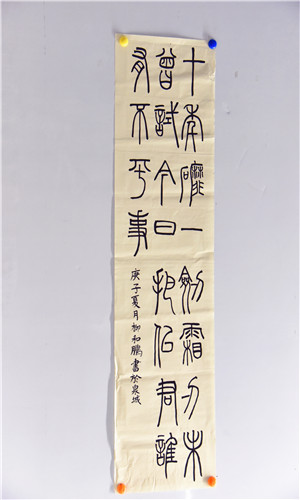 十年磨一劍霜刃未
曾試今日把似君誰
有不平事
庚子夏月柳和鵬書於泉城